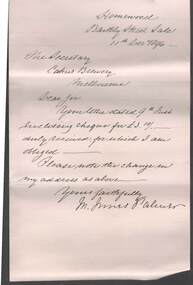 Homewood
Barkly Street Sale
11th Dec 1896
The Secretary
Brewery
Melbourne
Dear Sir
Your letter dated 9th Inst
enclosing cheque for £3
duly received, for which I am
obliged
Please note the change in
my address as above
Yours faithfully
M. Innes Palmer